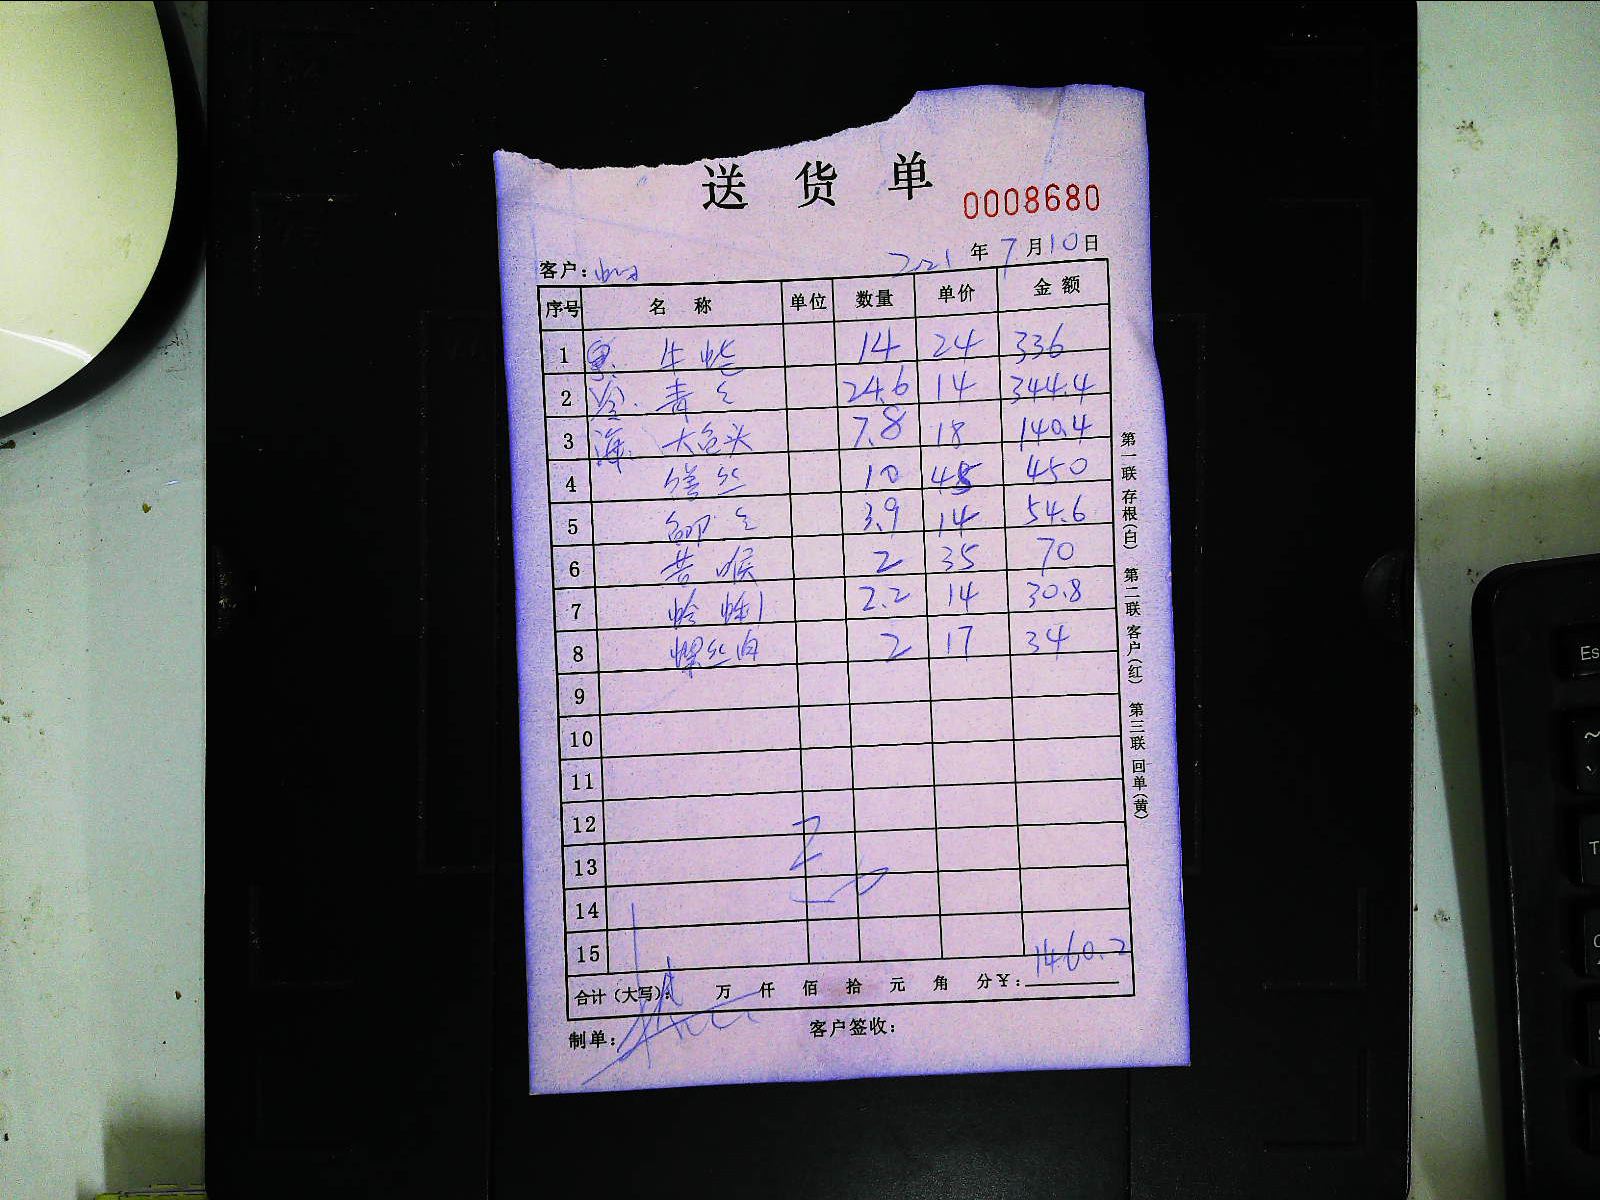 送 货 单
0008680
2021 年 7 月 10 日
客户：
序号 名 称 单位 数量 单价 金 额
1 牛蛙 14 24 336
2 青仝 24.6 14 344.4
3 海. 大鱼头 7.8 18 140.4
4 鳝丝 10 45 450
5 3.9 14 54.6
6 2 35 70
7 蛤蜊 2.2 14 30.8
8 螺丝肉 2 17 34
9
10
11
12
13
14
15
合计（大写）： 万 仟 佰 拾 元 角 分 ¥：1460.2
制单： 客户签收：
第一联 存根（白） 第二联 客户（红） 第三联 回单（黄）
Es
~